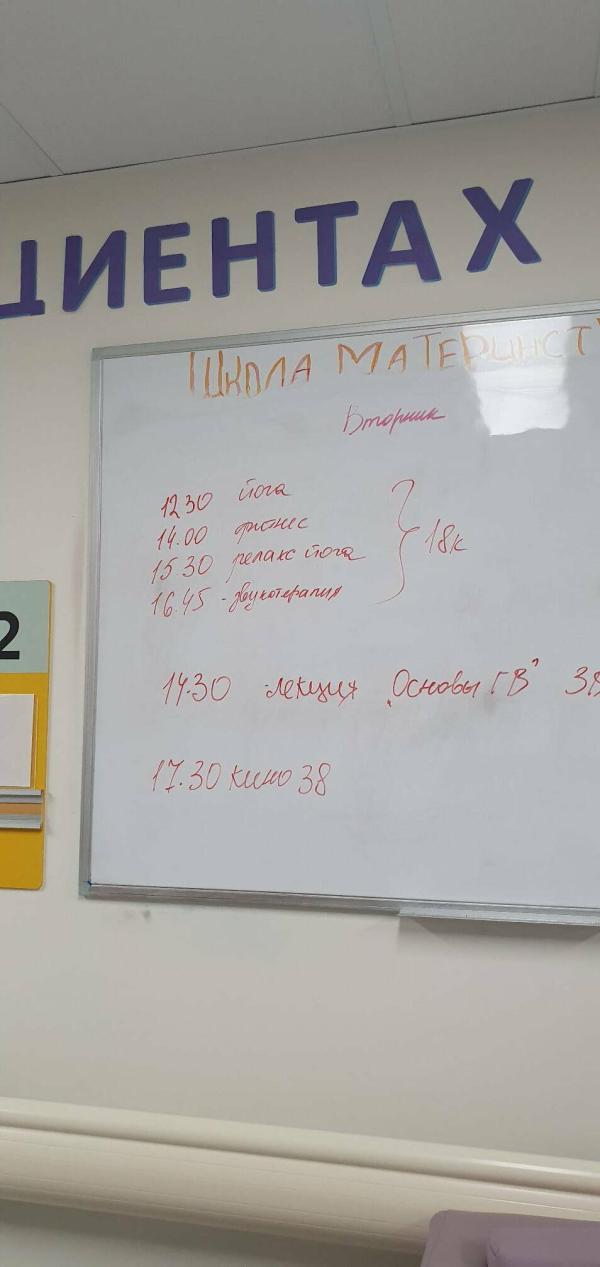 ЦИЕНТАХ
ШКОЛА МАТЕРИНСТ
Вторник
12 30 йога
14.00 фитнес
15.30 релакс йога
16.45 - звукотерапия
18к
14.30 - лекция „Основы ГВ" 38
17.30 кино 38
2